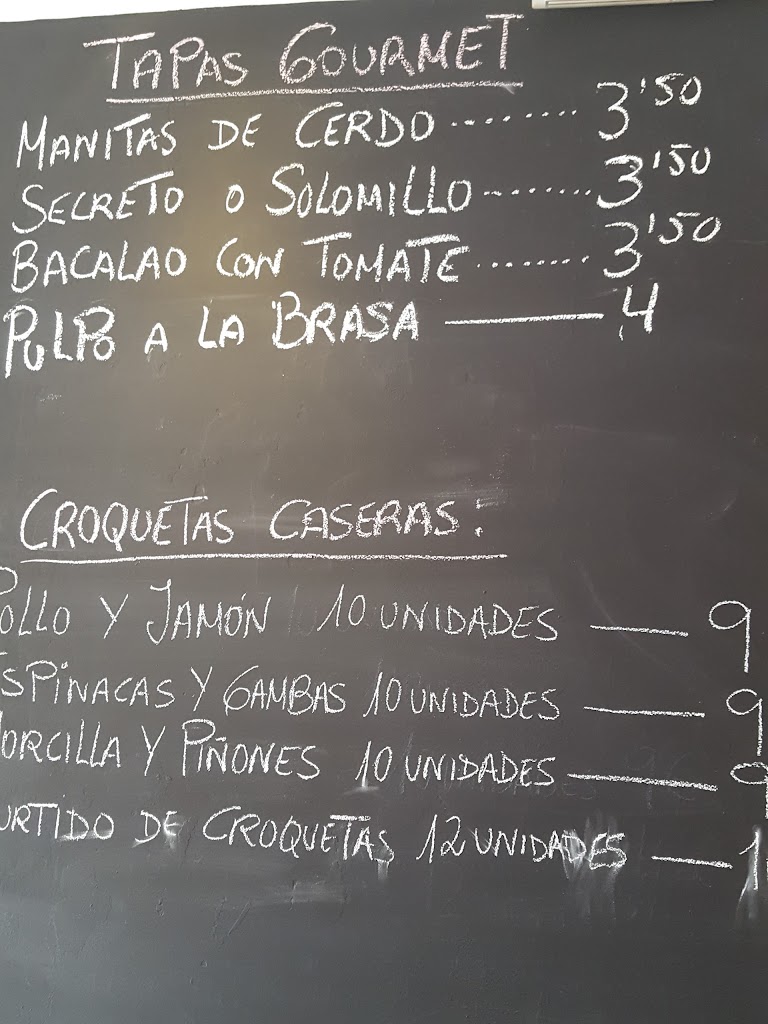 TAPAS GOURMET
MANITAS DE CERDO ........ 3'50
SECRETO O SOLOMILLO ....... 3'50
BACALAO CON TOMATE ........ 3'50
PULPO A LA BRASA — 4
CROQUETAS CASERAS:
POLLO Y JAMÓN 10 UNIDADES — 9
ESPINACAS Y GAMBAS 10 UNIDADES — 9
MORCILLA Y PIÑONES 10 UNIDADES — 9
URTIDO DE CROQUETAS 12 UNIDADES — 1